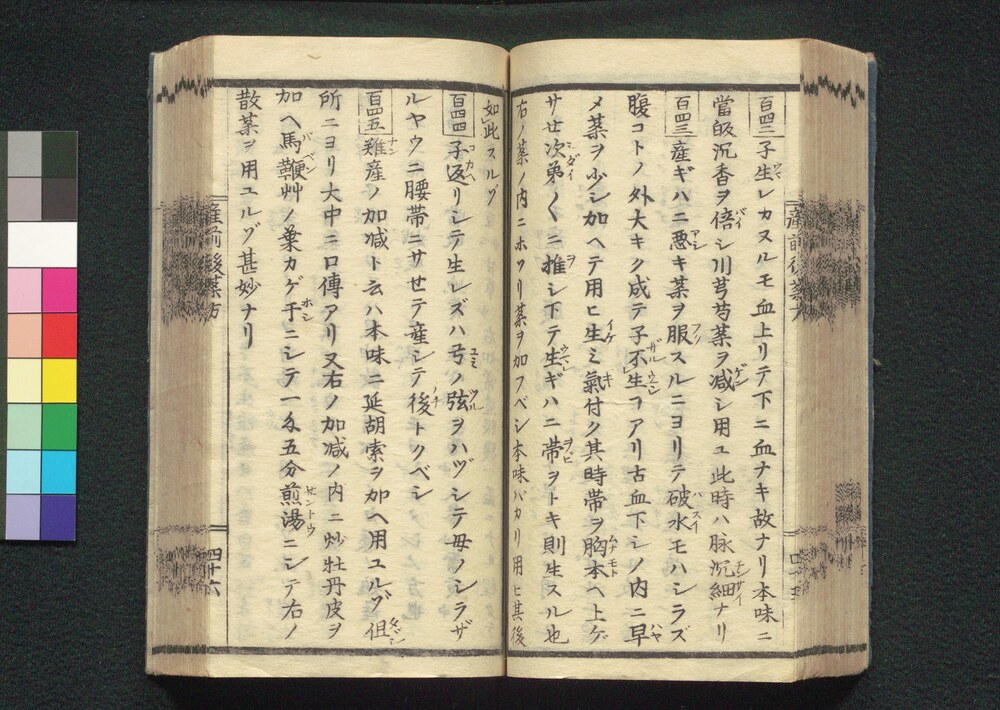 百四二 子生レカヌルモ血上リテ下ニ血ナキ故ナリ本味ニ
當皈沉香ヲ倍シ川芎芍薬ヲ减シ用ユ此時ハ脉沉細ナリ
百四三 産ギハニ悪キ薬ヲ服スルニヨリテ破水モハシラズ
腹コトノ外大キク成テ子不生ヿアリ古血下シノ内ニ早
メ薬ヲ少シ加ヘテ用ヒ生ミ氣付ク其時帯ヲ胸本ヘ上ゲ
サセ次第〱ニ推シ下テ生ギハニ帯ヲトキ則生スル也
右ノ薬ノ内ニホツリ薬ヲ加フベシ本味バカリ用ヒ其後
如此スルヅ
百四四 子返リシテ生レズハ弓ノ弦ヲハヅシテ母ノシラザ
ルヤウニ腰帯ニサセテ産シテ後トクベシ
百四五 難産ノ加减ト云ハ本味ニ延胡索ヲ加ヘ用ユルヅ但
所ニヨリ大中ニ口傳アリ又右ノ加减ノ内ニ炒牡丹皮ヲ
加ヘ馬鞭艸ノ葉カゲ干ニシテ一匁五分煎湯ニシテ右ノ
散薬ヲ用ユルヅ甚妙ナリ
産前後薬方
四十六